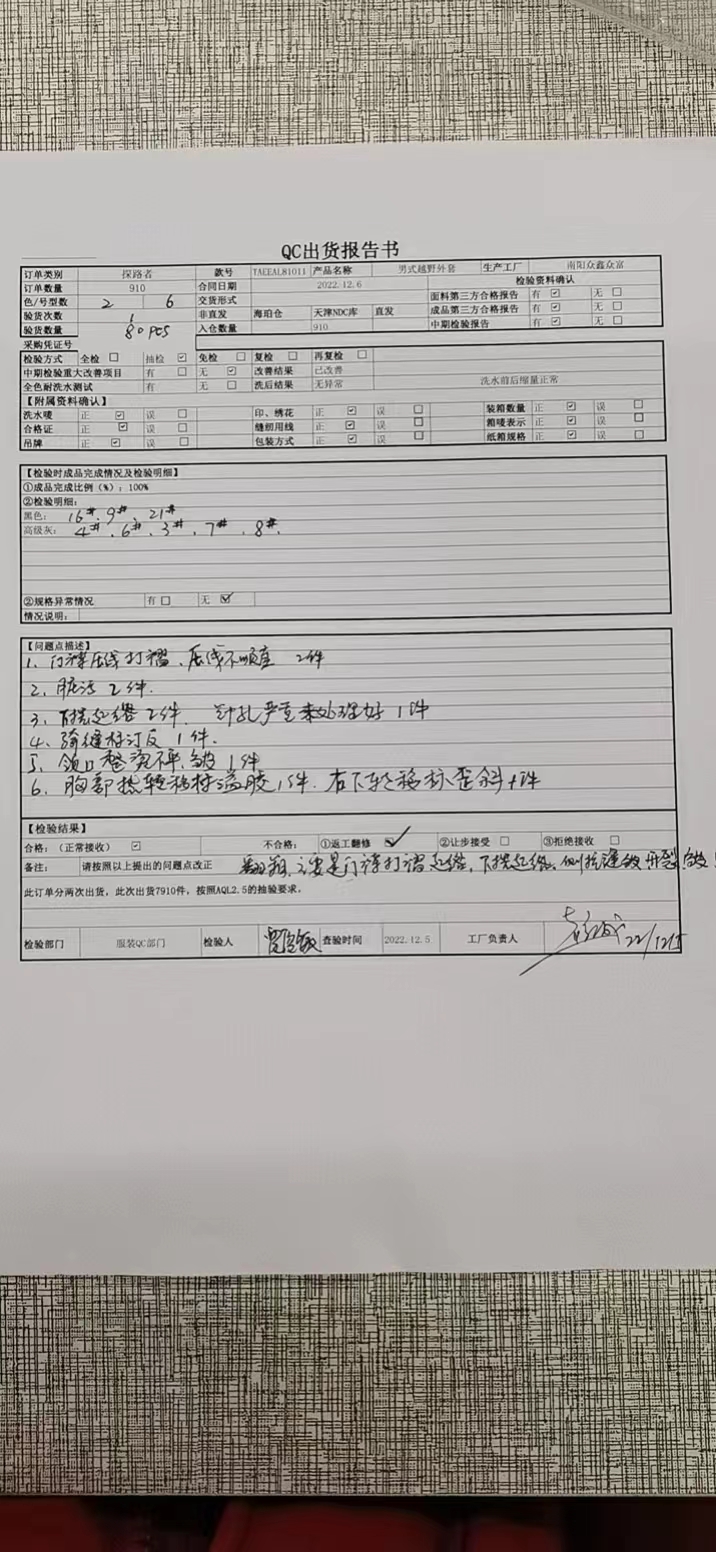 QC出货报告书
订单类别 探路者 款号 TAEEAL81011 产品名称 男式越野外套 生产工厂 南阳众鑫众富
订单数量 910 合同日期 2022.12.6 检验资料确认
色/号型数 2 6 交货形式 面料第三方合格报告 有 ☑ 无 □
验货次数 1 非直发 海珀仓 天津NDC库 直发 成品第三方合格报告 有 ☑ 无 □
验货数量 80 pcs 入仓数量 910 中期检验报告 有 ☑ 无 □
采购凭证号
检验方式 全检 □ 抽检 ☑ 免检 □ 复检 □ 再复检 □
中期检验重大改善项目 有 □ 无 ☑ 改善结果 已改善
全色耐洗水测试 有 无 □ 洗后结果 无异常 洗水前后缩量正常
【附属资料确认】
洗水唛 正 ☑ 误 □ 印、绣花 正 ☑ 误 □ 装箱数量 正 ☑ 误 □
合格证 正 ☑ 误 □ 缝纫用线 正 ☑ 误 □ 箱唛表示 正 ☑ 误 □
吊牌 正 ☑ 误 □ 包装方式 正 ☑ 误 □ 纸箱规格 正 ☑ 误 □
【检验时成品完成情况及检验明细】
①成品完成比例（%）：100%
②检验明细：
黑色： 16#、9#、21#
高级灰： 4#、6#、3#、7#、8#.
②规格异常情况 有 □ 无 ☑
情况说明：
【问题点描述】
1、门襟压线打褶、压线不顺直 2件
2、脏污 2件.
3、下摆起绺 2件. 针孔严重未处理好 1件
4、骑缝标订反 1件.
5、领口整烫不平、皱 1件
6、胸部热转移标溢胶 1件. 右下转移标歪斜 1件
【检验结果】
合格：（正常接收） ☑ 不合格： ①返工翻修 ☑ ②让步接受 □ ③拒绝接收 □
备注： 请按照以上提出的问题点改正 翻箱，主要是门襟打褶起绺，下摆起绺、
此订单分两次出货，此次出货7910件，按照AQL2.5的抽验要求。
检验部门 服装QC部门 检验人 查验时间 2022.12.5 工厂负责人 22/12/5